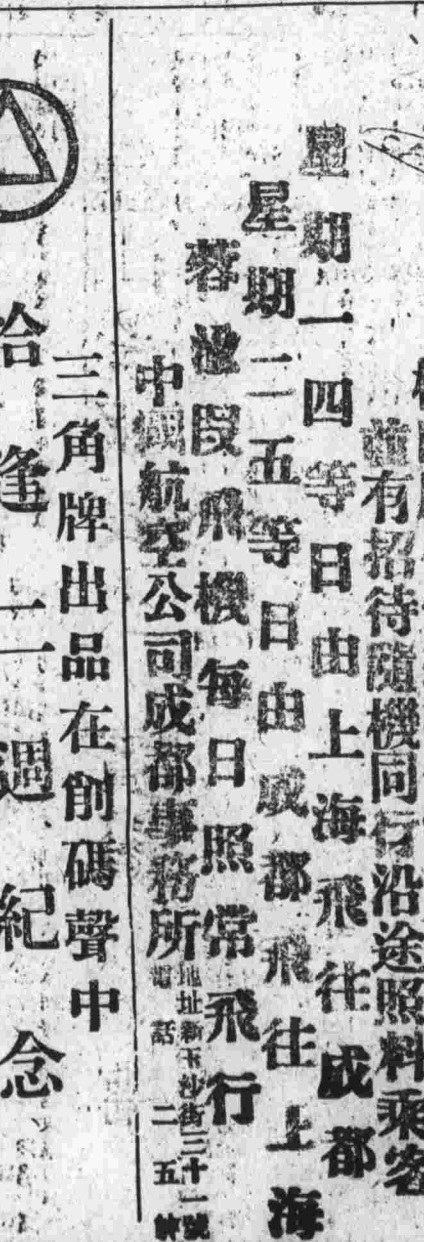 並有招待隨機同行沿途照料乘客
星期一四等日由上海飛往成都
星期二五等日由成都飛往上海
蓉渝段飛機每日照常飛行
中國航空公司成都事務所
地址新玉沙街三十一號
電話二五
三角牌出品在削碼聲中
恰逢二週紀念